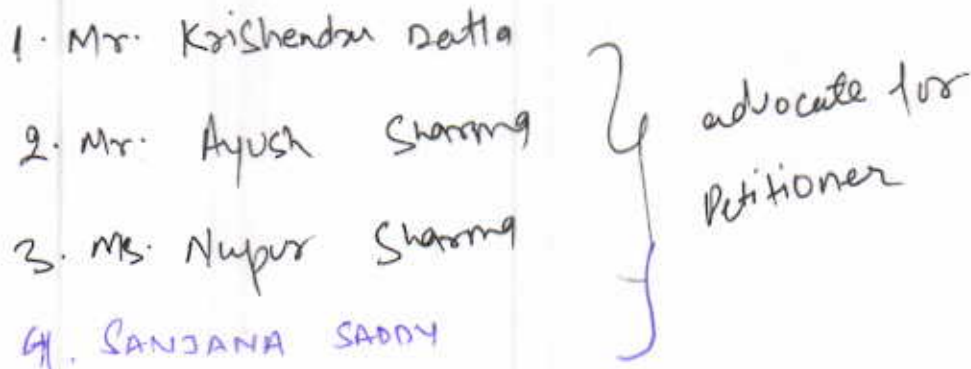 1. Mr. Krishendru Datta
2. Mr. Ayush Sharma
3. Ms. Nupur Sharma
4. SANJANA SADDY
advocate for
Petitioner